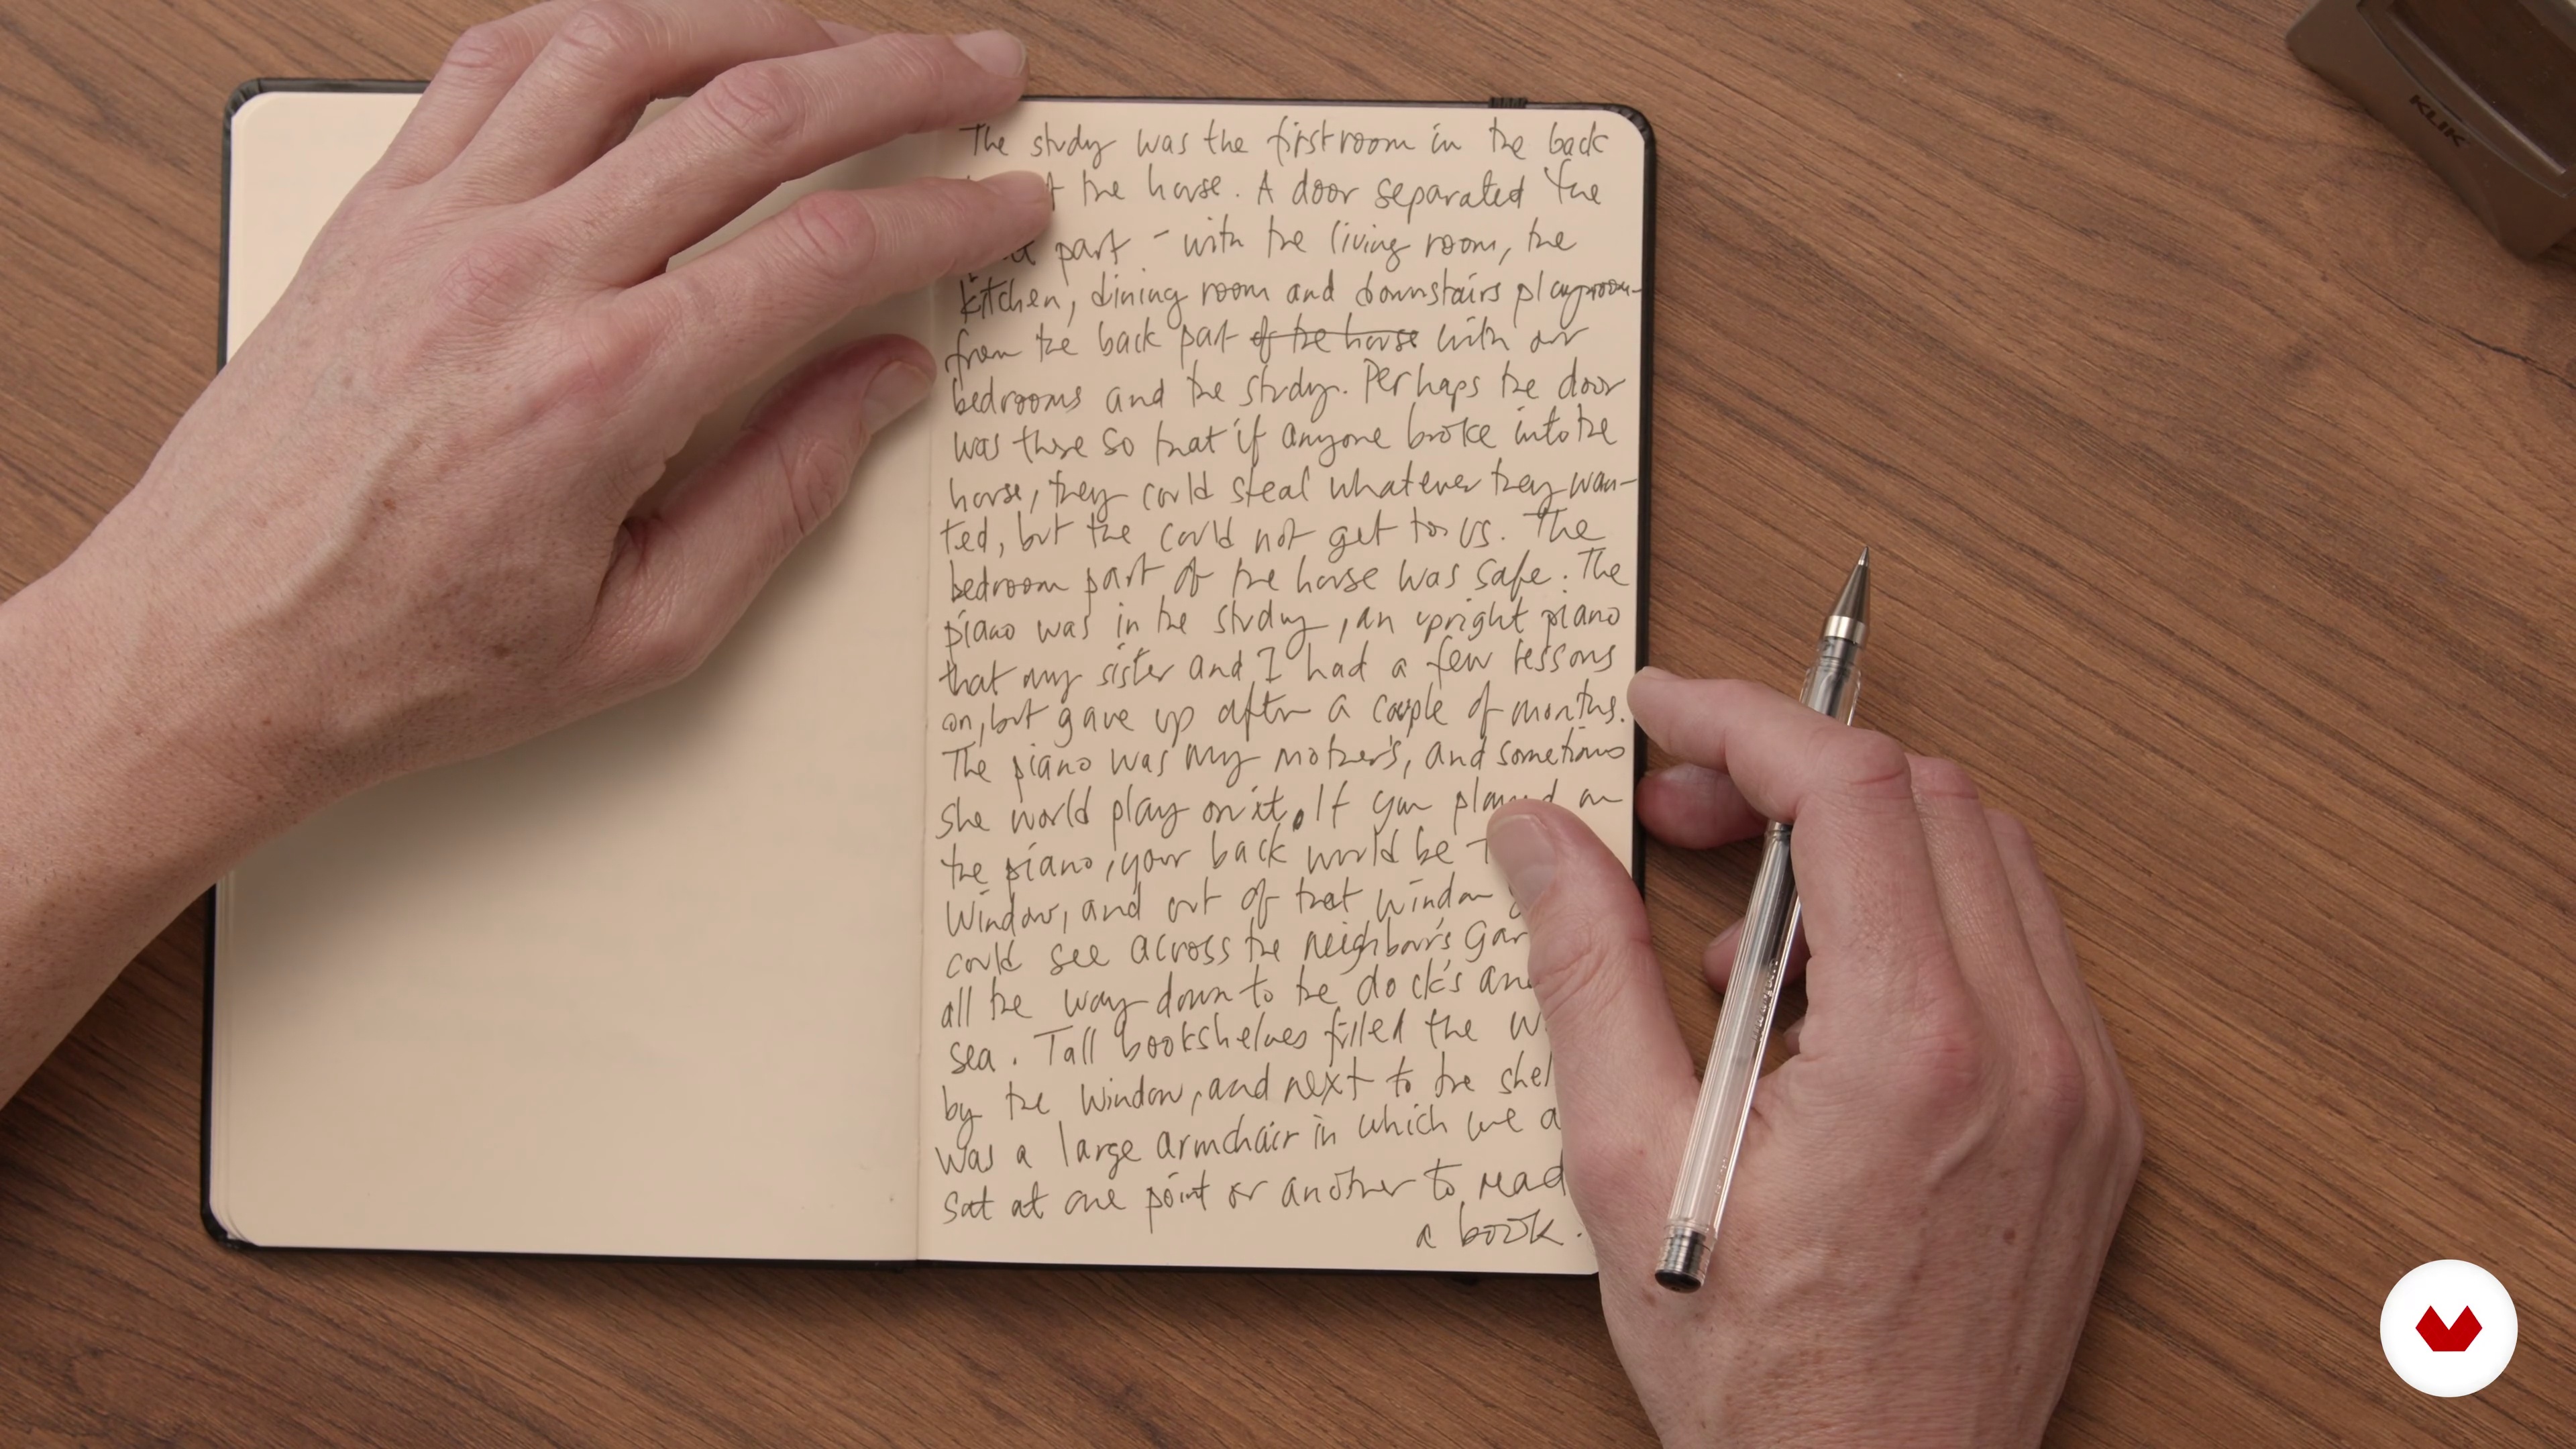 The study was the first room in the back
the house. A door separated the
part - with the living room, the
kitchen, dining room and downstairs playroom -
from the back part of the house with our
bedrooms and the study. Perhaps the door
was there so that if anyone broke into the
house, they could steal whatever they wan-
ted, but the could not get to us. The
bedroom part of the house was safe. The
piano was in the study, an upright piano
that my sister and I had a few lessons
on, but gave up after a couple of months.
The piano was my mother's, and sometimes
she would play on it. If you played on
the piano, your back would be
window, and out of that window
could see across the neighbour's
all the way down to the dock's
sea. Tall bookshelves filled the
by the window, and next to the
was a large armchair in which we
sat at one point or another to read
a book.
KLIK